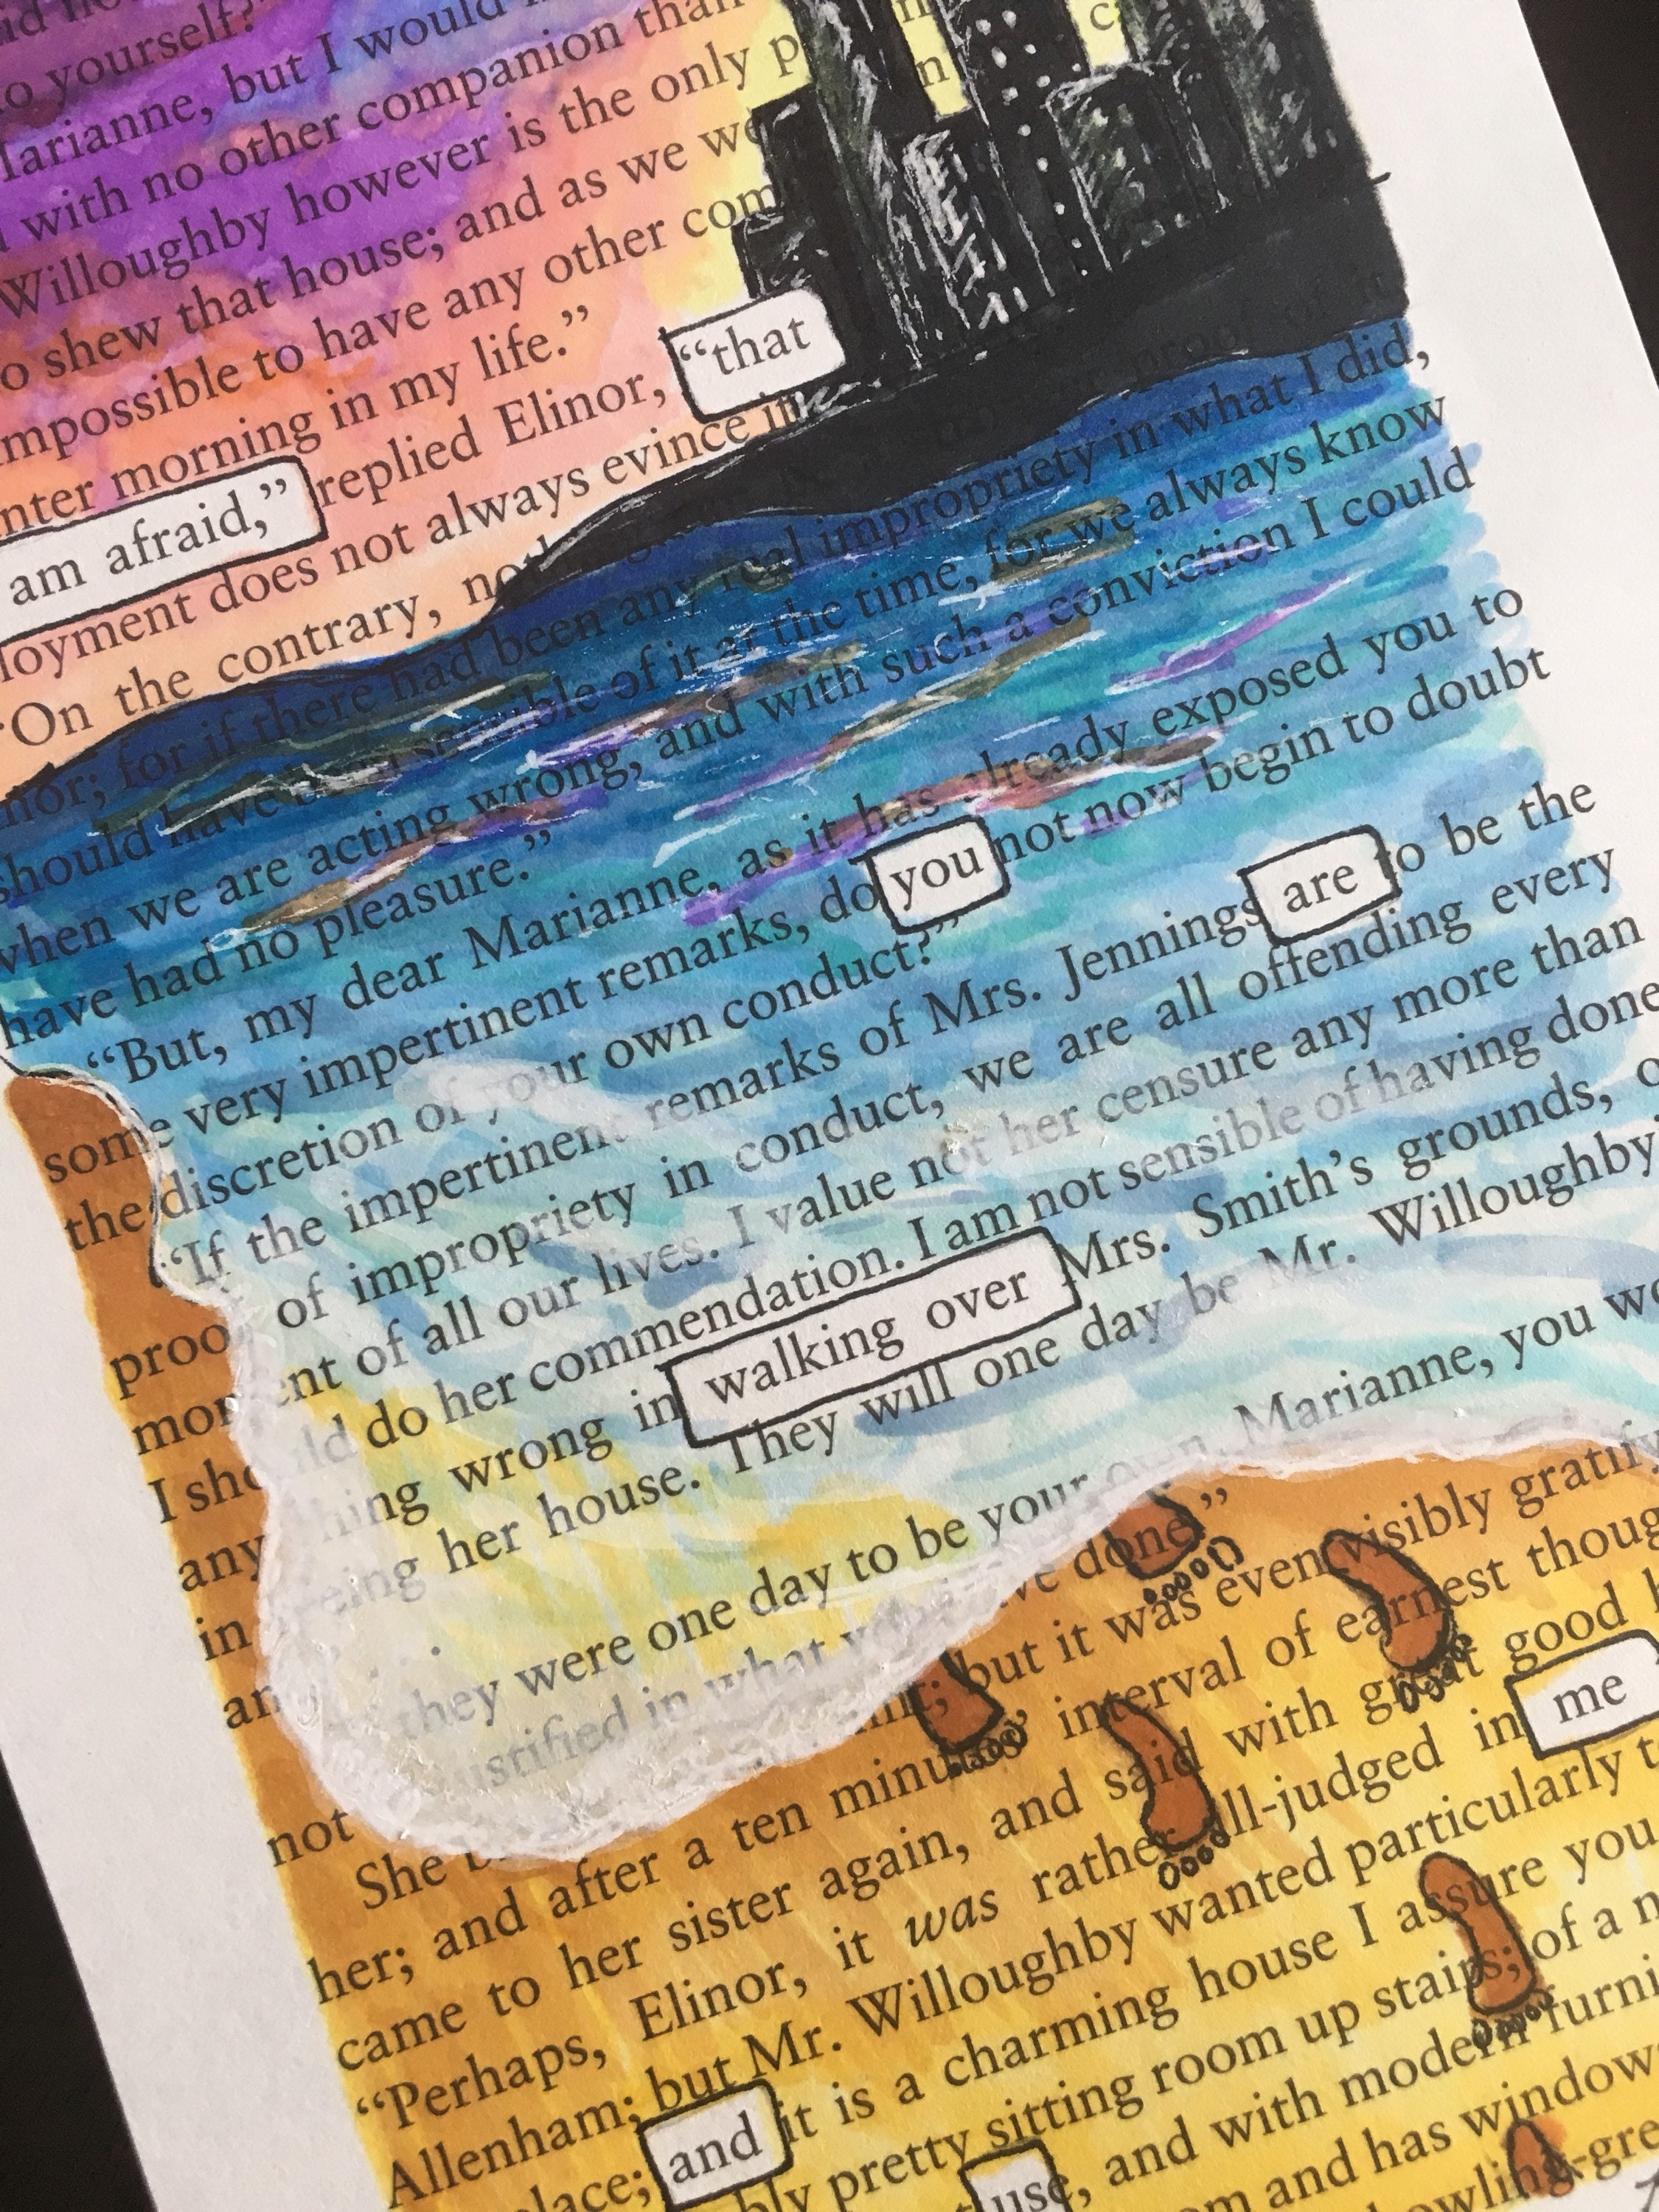 to yourself?"
Marianne, but I would
with no other companion than
Willoughby however is the only
to shew that house; and as we we
impossible to have any other com
nter morning in my life."
am afraid," replied Elinor, "that
loyment does not always evince it
"On the contrary, noth
nor; for if there had been any real impropriety in what I did,
should have been sensible of it at the time, for we always know
when we are acting wrong, and with such a conviction I could
have had no pleasure."
"But, my dear Marianne, as it has already exposed you to
some very impertinent remarks, do you not now begin to doubt
the discretion of your own conduct?"
"If the impertinent remarks of Mrs. Jennings are to be the
proof of impropriety in conduct, we are all offending every
moment of all our lives. I value not her censure any more than
I should do her commendation. I am not sensible of having done
anything wrong in walking over Mrs. Smith's grounds, o
in seeing her house. They will one day be Mr. Willoughby'
an
they were one day to be your own, Marianne, you wo
not justified in what you have done."
She b nt; but it was even visibly gratify
her; and after a ten minutes' interval of earnest thoug
came to her sister again, and said with great good h
"Perhaps, Elinor, it was rather ill-judged in me
Allenham; but Mr. Willoughby wanted particularly t
lace; and it is a charming house I assure you
bly pretty sitting room up stairs; of a n
use, and with modern furni
om and has window
owling-gre